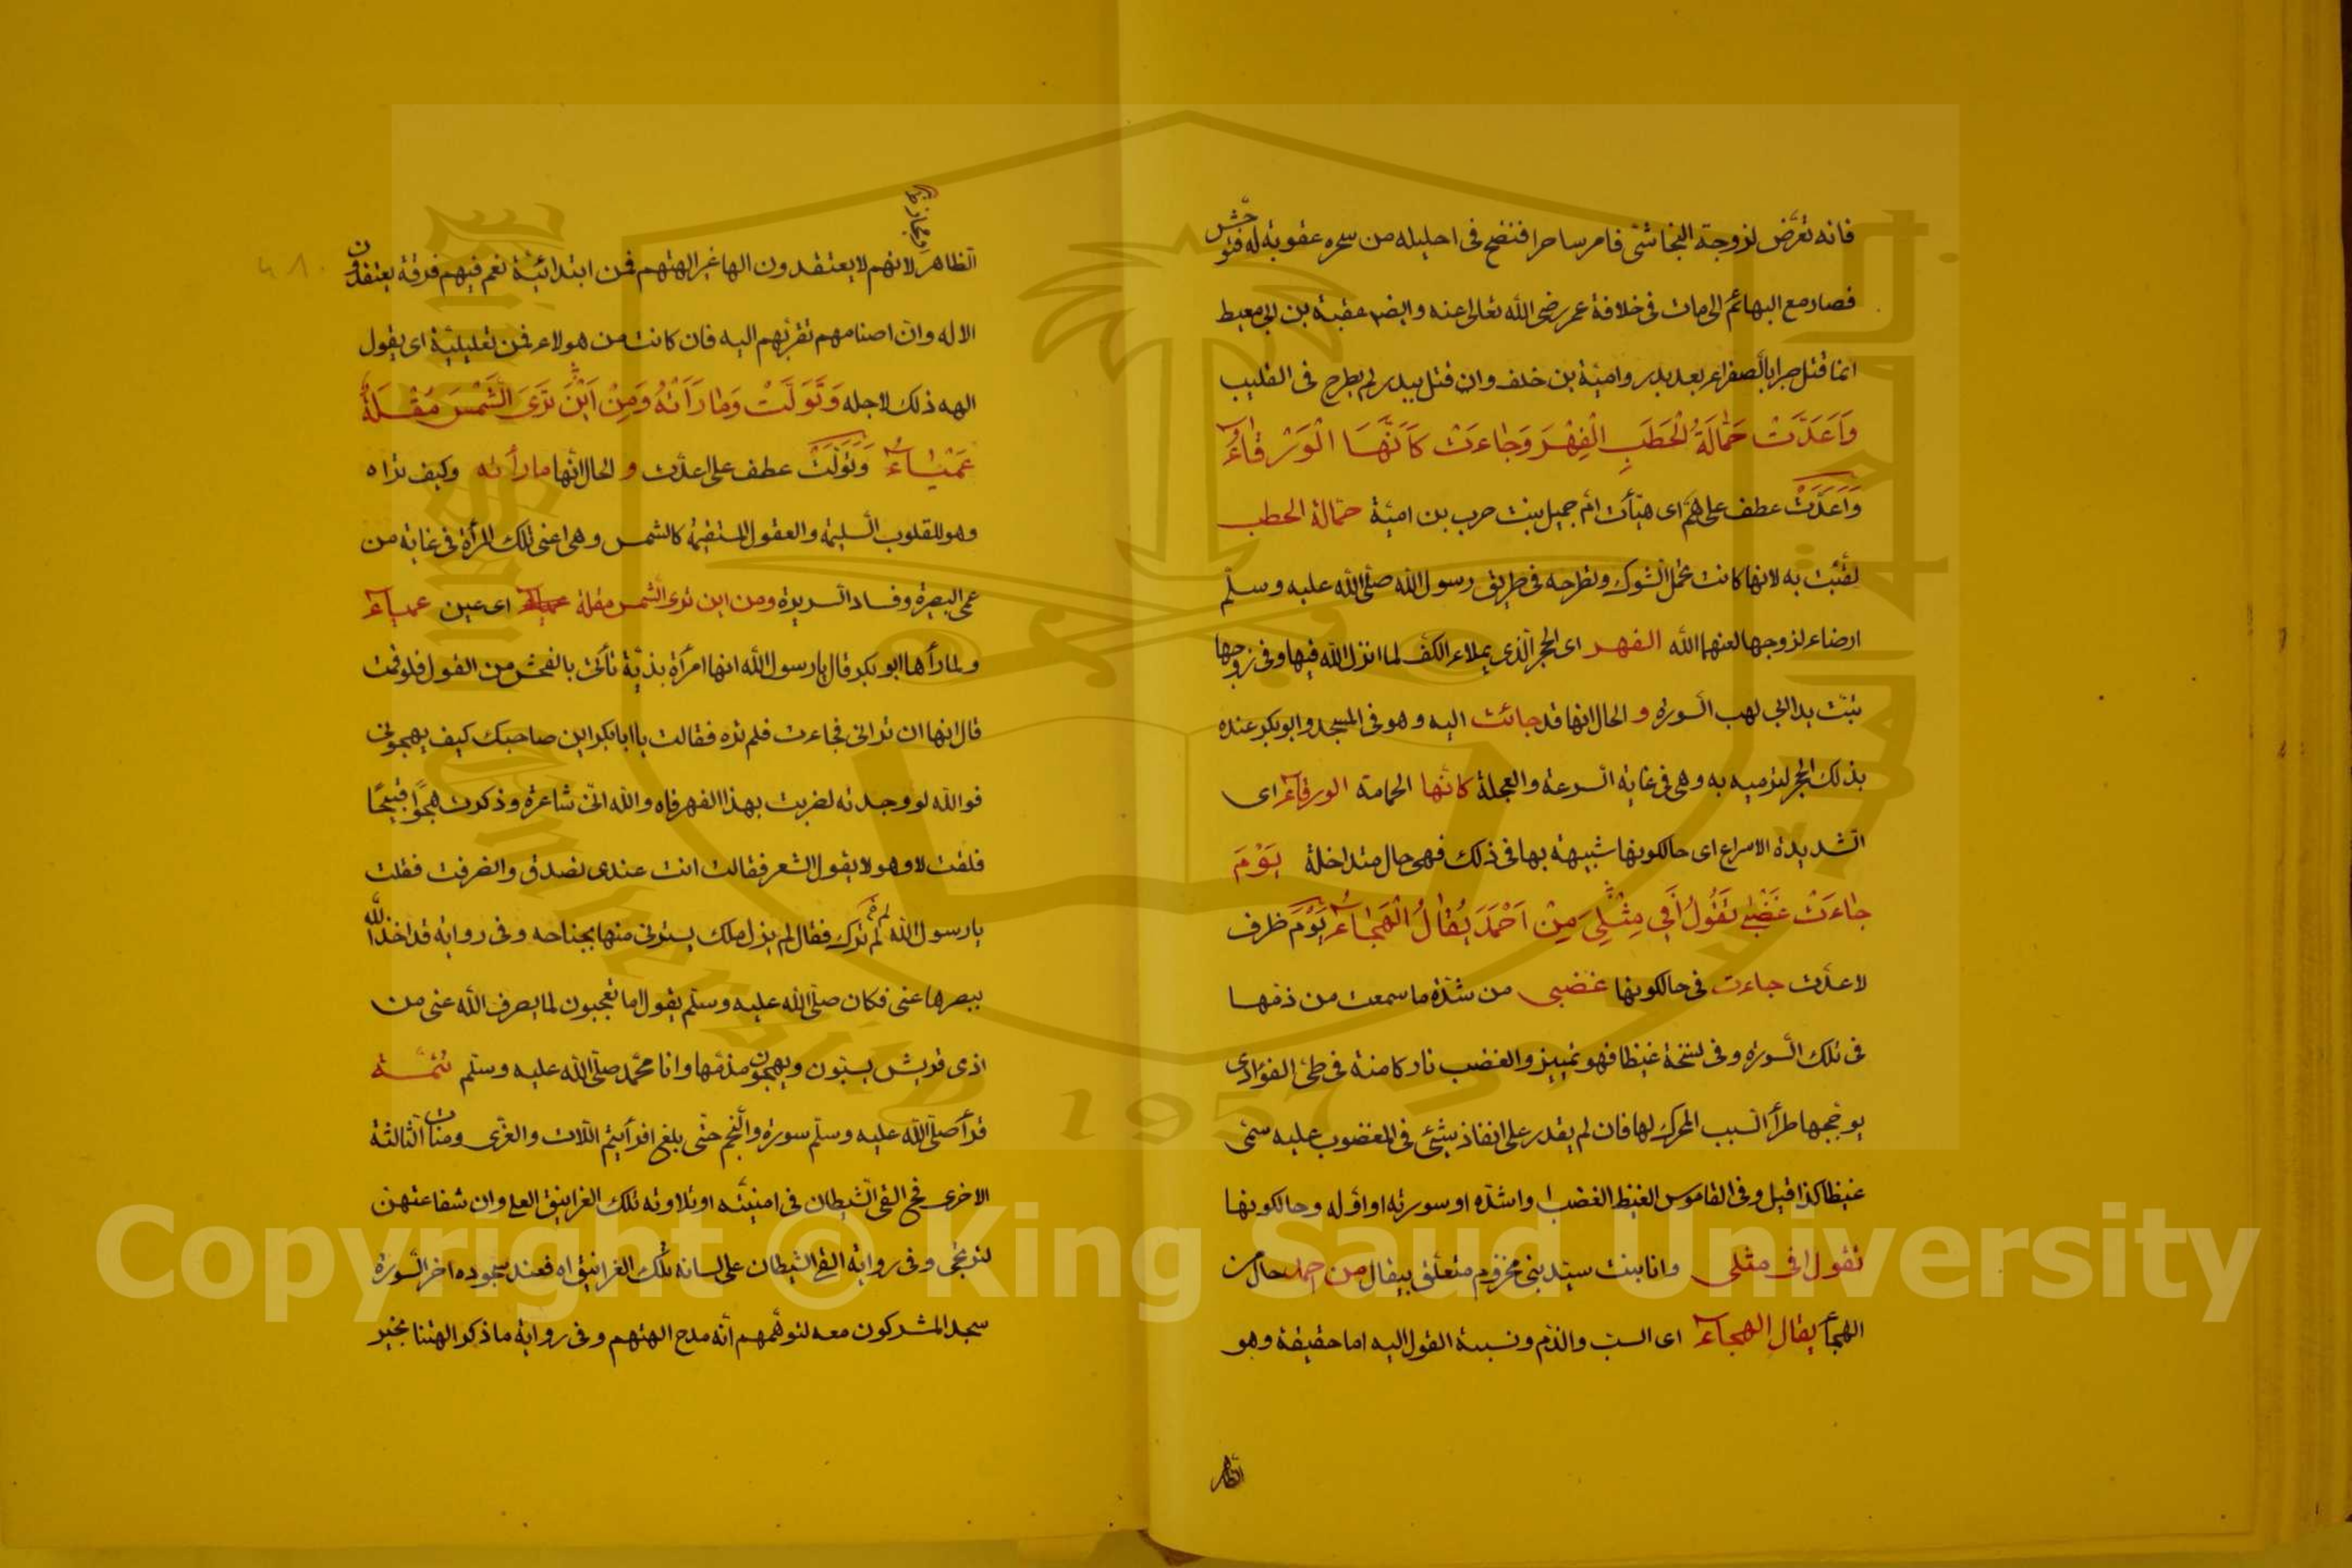 فانه تعرض لزوجة النجاشي فامر ساحرا فنفخ في احليله من سحره عقوبة له فتوحش
فصار مع البهائم الى مات في خلافة عمر رضي الله تعالى عنه وايضا عقبة بن ابي معيط
انما قتل صبرا بالصفراء بعد بدر وامية بن خلف وان قتل ببدر لم يطرح في القليب
وَاَعَدَّتْ حَمّالَةُ الْحَطَبِ الْفِهْرَ وَجاءَتْ كَاَنَّهَا الْوَرْقاءُ
وَاَعَدَّتْ عطف على هم اى هيأت ام جميل بنت حرب بن امية حمالة الحطب
لقبت به لانها كانت تحمل الشوك وتطرحه في طريق رسول الله صلى الله عليه وسلم
ارضاء لزوجها لعنهما الله الفهر اى الحجر الذى يملاء الكف لما انزل الله فيها وفي زوجها
تبت يدا ابي لهب السورة و الحال انها قد جائت اليه وهو في المسجد وابو بكر عنده
بذلك الحجر لترميه به وهى في غاية السرعة والعجلة كانها الحمامة الورقاء اى
الشديدة الاسراع اى حال كونها شبيهة بها في ذلك فهى حال متداخلة يَوْمَ
جاءَتْ غَضْبى تَقُولُ اَفي مِثْلِيَ مِنْ اَحْمَدَ يُقالُ الْهَجاءُ يَوْمَ ظرف
لاعدت جاءت في حال كونها غضبى من شدة ما سمعت من ذمها
في تلك السورة وفي نسخة غيظا فهو تمييز والغضب نار كامنة في طى الفؤاد
يوججها طرأ السبب المحرك لها فان لم يقدر على انفاذ شئ في المغضوب عليه سمى
غيظا كذا قيل وفي القاموس الغيظ الغضب او اشده او سورته او اوله وحال كونها
تقول افي مثلى وانا بنت سيد بني مخزوم متعلق بيقال من احمد حال من
الهجأ يقال الهجاء اى السب والذم ونسبة القول اليه اما حقيقة وهو
الظاهر
او مجاز
الظاهر لانهم لا يعتقدون الها غير الهتهم فمن ابتدائية نعم فيهم فرقة يعتقدون
الاله وان اصنامهم تقربهم اليه فان كانت من هولاء فمن تعليلية اى يقول
الهه ذلك لاجله وَتَوَلَّتْ وَما رَاَتْهُ وَمِنْ اَيْنَ تَرَى الشَّمْسَ مُقْلَةٌ
عَمْياءُ وَتَوَلَّتْ عطف على اعدت و الحال انها ما رأته وكيف تراه
وهو للقلوب السليمة والعقول المستقيمة كالشمس وهى اعنى تلك المرأة في غاية من
عمى البصيرة وفساد السريرة ومن اين ترى الشمس مقلة اى عين عمياء
ولما رأها ابو بكر قال يا رسول الله انها امرأة بذية تأتى بالفحش من القول فلو قمت
قال انها لن ترانى فجاءت فلم تره فقالت يا ابا بكر اين صاحبك كيف يهجونى
فوالله لو وجدته لضربت بهذا الفهر فاه والله انى شاعرة وذكرت هجوا قبيحا
فلقت لا وهو لا يقول الشعر فقالت انت عندى تصدق وانصرفت فقلت
يا رسول الله لم لم ترك فقال لم يزل ملك يسترنى منها بجناحه وفي رواية قد اخذ الله
ببصرها عنى فكان صلى الله عليه وسلم يقول اما تعجبون لما يصرف الله عنى من
اذى قريش يسبون ويهجون مذمها وانا محمد صلى الله عليه وسلم تتمة
قرأ صلى الله عليه وسلم سورة والنجم حتى بلغ افرأيتم اللات والعزى ومنات الثالثة
الاخرى فح القى الشيطان في امنيته او تلاوته تلك الغرانيق العلى وان شفاعتهن
لترتجى وفي رواية القى الشيطان على لسانه تلك الغرانيق اه فعند سجوده اخر السورة
سجد المشركون معه لتوهمهم انه مدح الهتهم وفي رواية ما ذكر الهتنا بخير
Copyright © King Saud University
King Saud University
1957